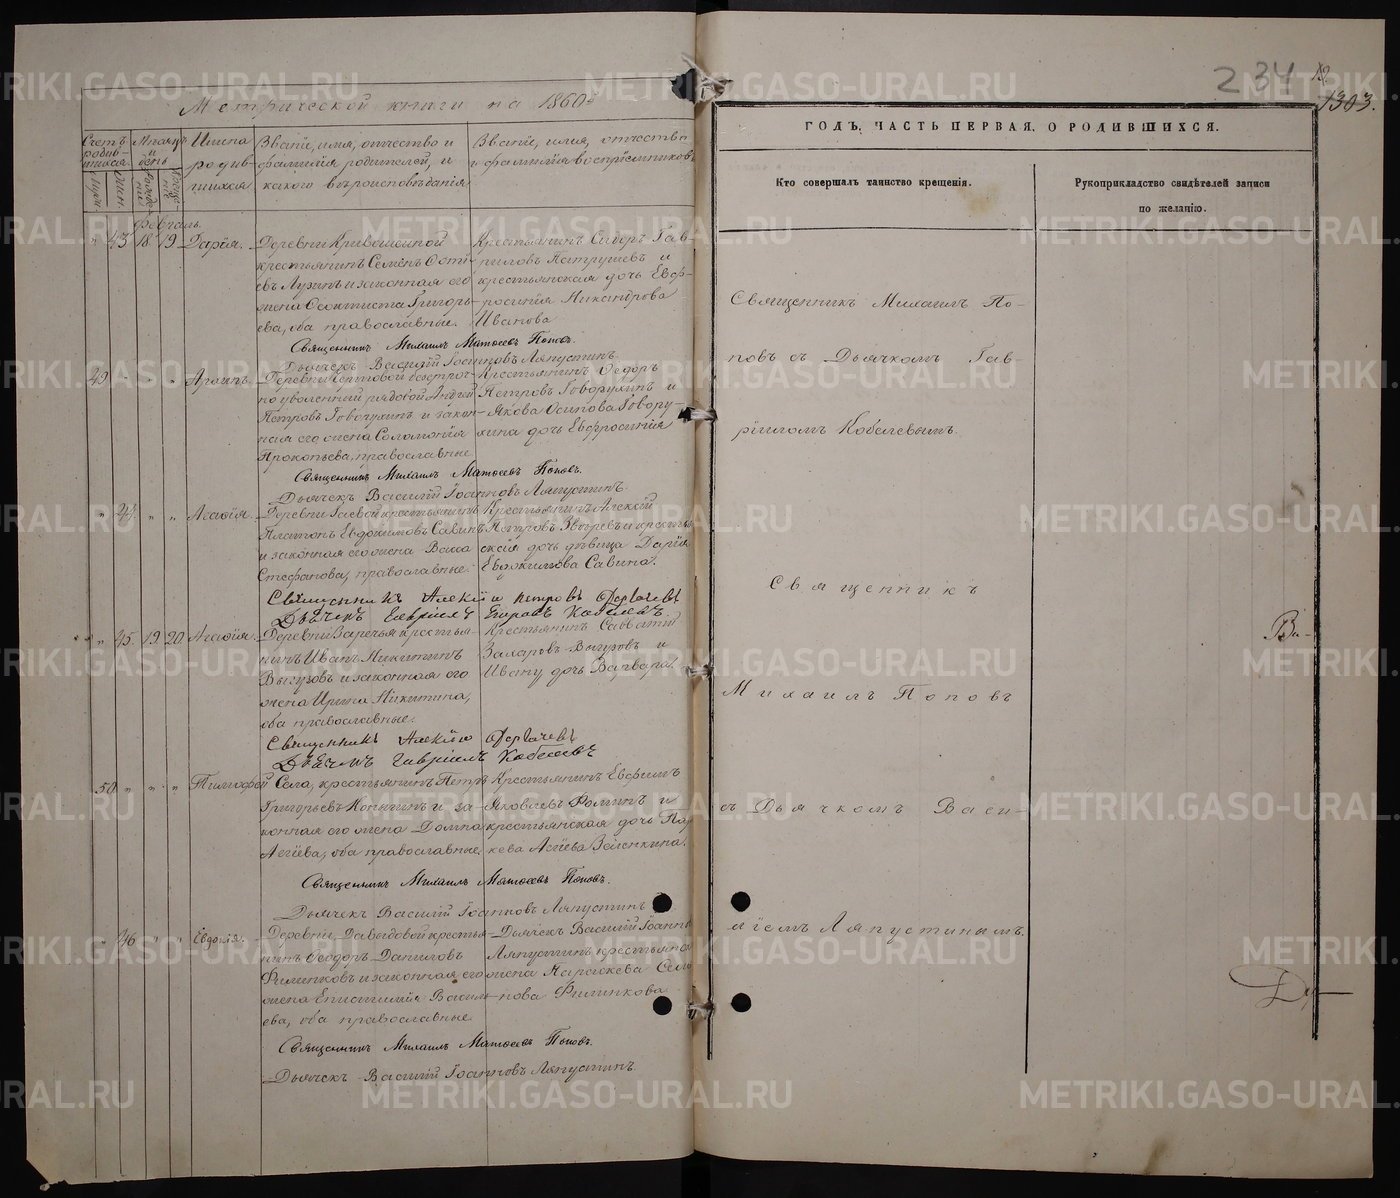 Метрической книги на 1860й
Счетъ родив-шихся.
Мѣсяцъ и день
Имена родив-шихся
Званіе, имя, отчество и фамилія родителей, и какого вѣроисповѣданія
Званіе, имя, отчество и фамилія воспріемниковъ
Февраль.
43 18. 19 Дарія.
Деревни Кривошеиной
крестьянинъ Семенъ
и законная его
жена Григорь-
ева, оба православные.
Крестьянинъ Сидоръ Гав-
риловъ Патрушевъ и
крестьянская дочь Евф-
росинія Никандрова
Иванова
Священникъ Михаилъ Матѳеевъ Поповъ.
Дьячекъ Василій Іоанновъ Ляпустинъ.
49 " " "
Деревни
уволенный рядовой Андрей
Петровъ Говорухинъ и закон-
ная его жена Соломонія
Прокопьева, православные
Крестьянинъ Ѳедоръ
Петровъ Говорухинъ и
Якова Осипова Говору-
хина дочь Евфросинія
Священникъ Михаилъ Матѳеевъ Поповъ.
Дьячекъ Василій Іоанновъ Ляпустинъ.
" 44. " " Агафія.
Деревни Гаевой крестьянинъ
Платонъ Евдокимовъ Савинъ
и законная его жена Васса
Стефанова, православные.
Крестьянинъ Алексій
Петровъ Звыревъ и кресть-
ская дочь дѣвица Дарія
Евдокимова Савина.
Священникъ Алексій Петровъ Дергачевъ
Дьячекъ Гавріилъ Егоровъ Кобелевъ.
" 45. 19. 20 Агафія.
Деревни Заречья крестья-
нинъ Иванъ Никитинъ
Выгузовъ и законная его
жена Ирина Никитина,
оба православные.
Крестьянинъ Савватій
Захаровъ Выгузовъ и
Ивану дочь Варвара.
Священникъ Алексій Дергачевъ
Дьячекъ Гавріилъ Кобелевъ
50 " " " Тимофей
Села, крестьянинъ Петръ
Григорьевъ Копычинъ и за-
конная его жена Домна
Агѣева, оба православные.
Крестьянинъ Евфимъ
Яковлевъ Фоминъ и
крестьянская дочь Пар-
кева Агѣева Зеленкина.
Священникъ Михаилъ Матѳеевъ Поповъ.
Дьячекъ Василій Іоанновъ Ляпустинъ
" 46 " " Евдокія.
Деревни Давыдовой крестья-
нинъ Ѳеодоръ Даниловъ
Филинковъ и законная его
жена Епистимія Василь-
ева, оба православные.
Дьячекъ Василій Іоанновъ
Ляпустинъ крестьянск
жена Параскева Семе
нова Филинкова
Священникъ Михаилъ Матѳеевъ Поповъ.
Дьячекъ Василій Іоанновъ Ляпустинъ.
234
1303.
ГОДЪ. ЧАСТЬ ПЕРВАЯ. О РОДИВШИХСЯ.
Кто совершалъ таинство крещенія.
Рукоприкладство свидѣтелей записи
по желанію.
Священникъ Михаилъ По-
повъ съ Дьячкомъ Гав-
ріиломъ Кобелевымъ.
Священникъ
Михаилъ Поповъ
съ Дьячкомъ Васи-
ліемъ Ляпустинымъ.
METRIKI.GASO-URAL.RU